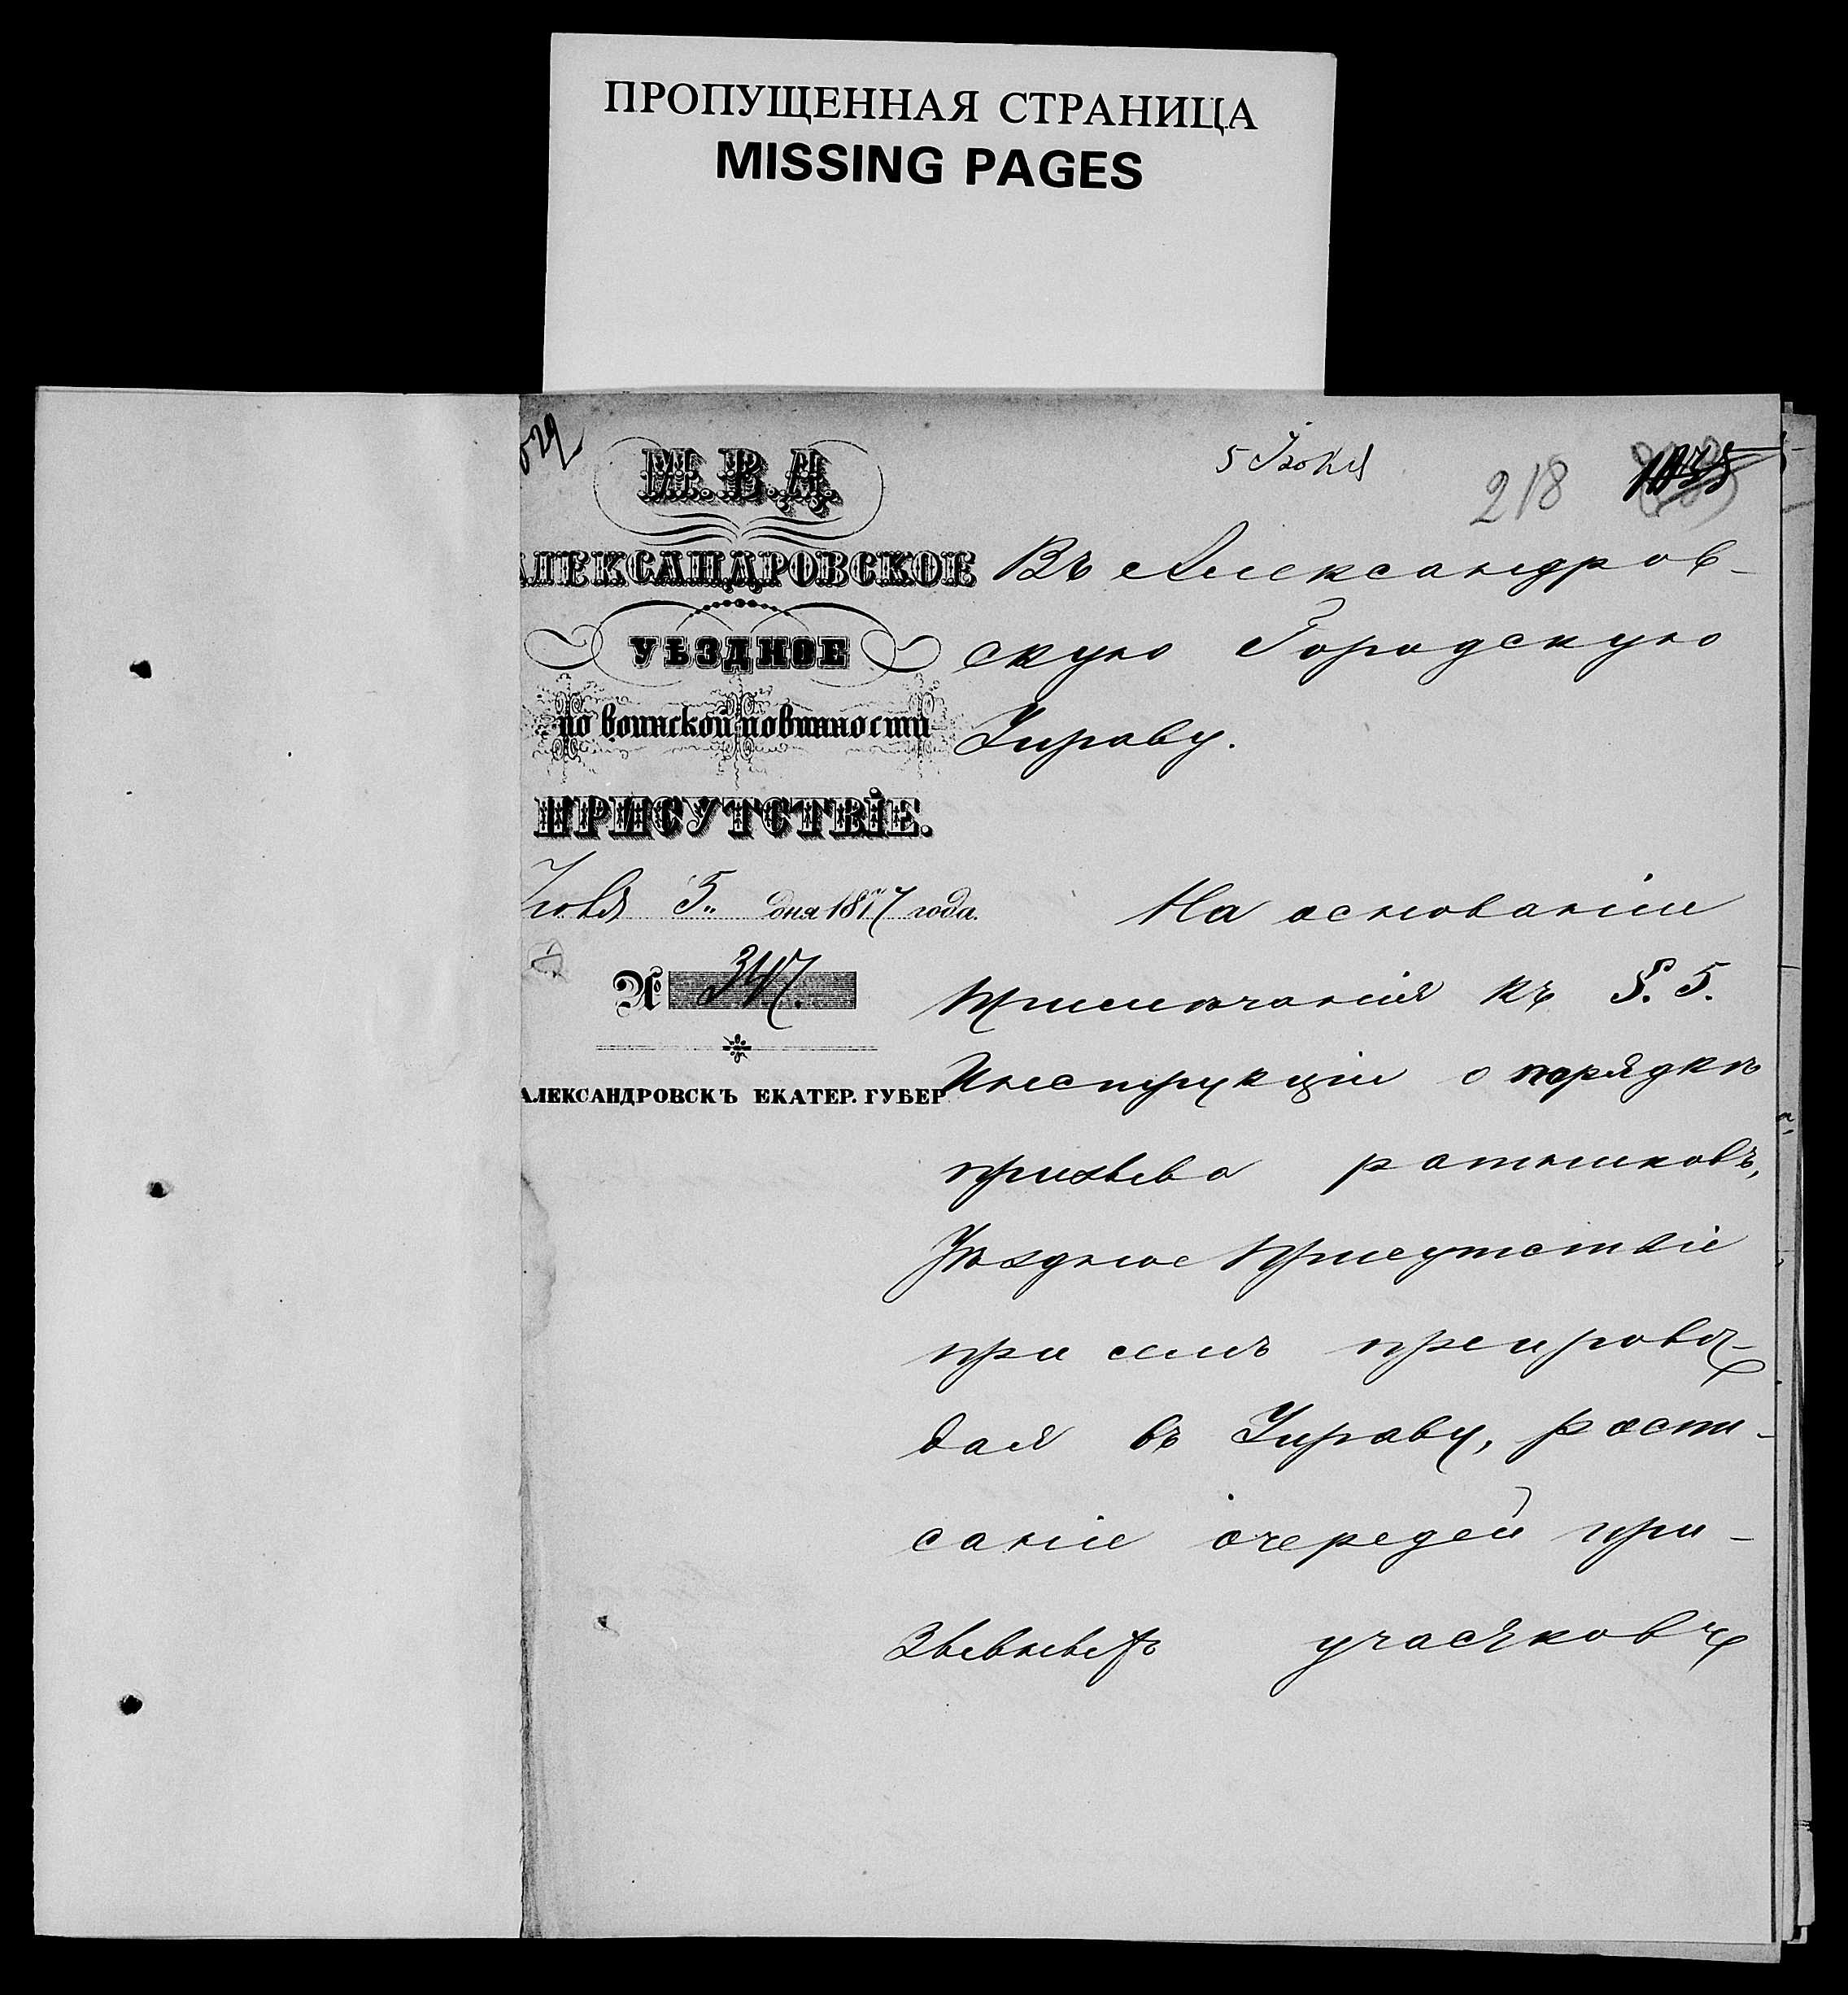 ПРОПУЩЕННАЯ СТРАНИЦА
MISSING PAGES
М. В. Д.
АЛЕКСАНДРОВСКОЕ
УѢЗДНОЕ
по воинской повинности
ПРИСУТСТВІЕ.
5 дня 1877 года.
№ 347.
АЛЕКСАНДРОВСКЪ ЕКАТЕР. ГУБЕР
218
Въ Александров-
скую Городскую
Управу.
На основаніи
Примѣчанія къ §. 5.
Инструкціи о порядкѣ
призыва ратниковъ,
Уѣздное Присутствіе
при семъ препровож-
дая въ Управу, роспи-
саніе очередей при-
зывныхъ участковъ